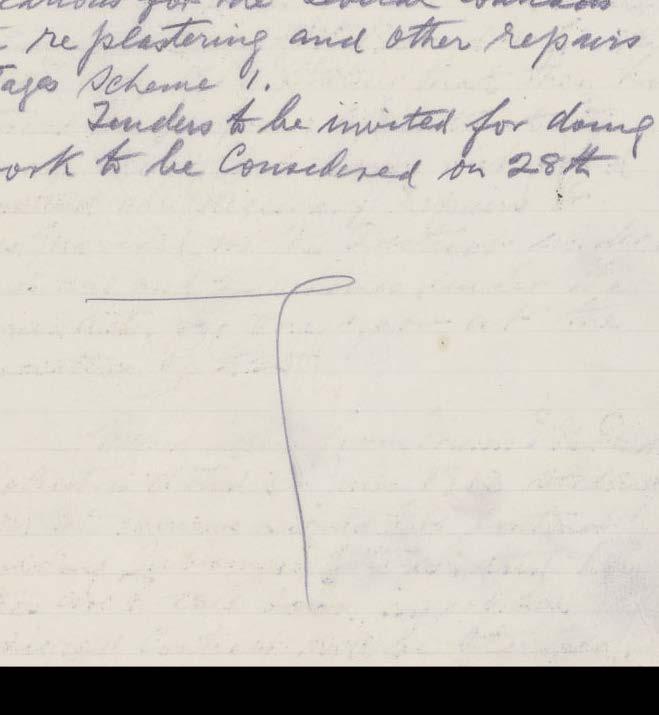 for the several
replastering and other repairs
Scheme 1.
Tenders to be invited for doing
ork to be Considered on 28th